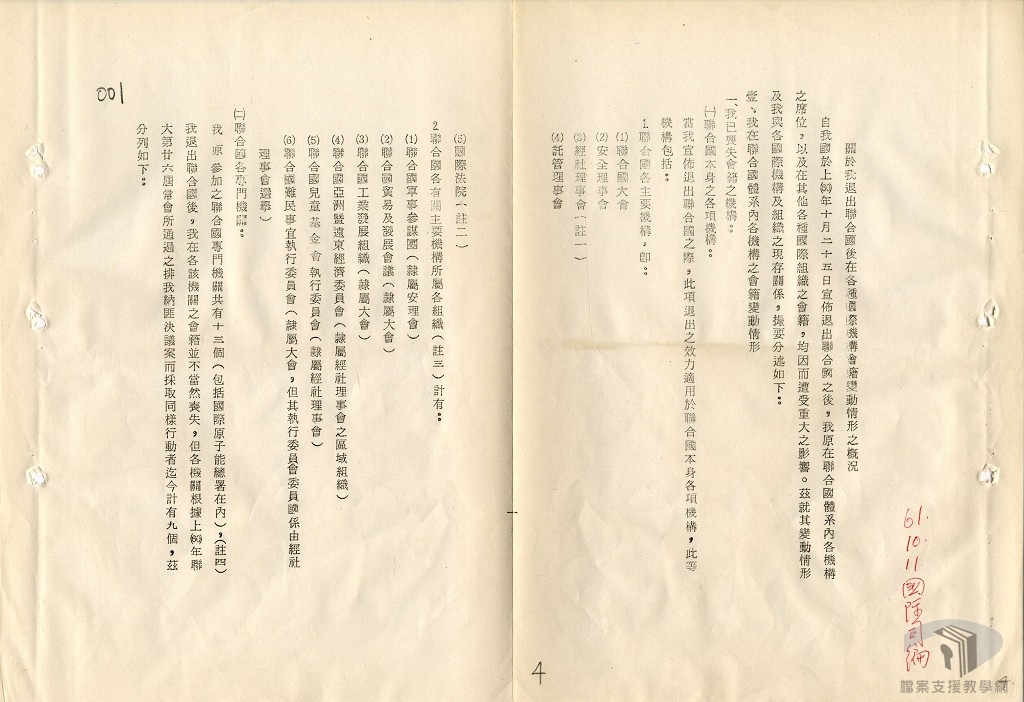 關於我退出聯合國後在各種國際機構會籍變動情形之概況
自我國於上(60)年十月二十五日宣佈退出聯合國之後,我原在聯合國體系內各機構
之席位,以及在其他各種國際組織之會籍,均因而遭受重大之影響。茲就其變動情形
及我與各國際機構及組織之現存關係,撮要分述如下:
壹、我在聯合國體系內各機構之會籍變動情形
一、我已喪失會籍之機構:
㈠聯合國本身之各項機構:
當我宣佈退出聯合國之際,此項退出之效力適用於聯合國本身各項機構,此等
機構包括:
1.聯合國各主要機構,即:
(1)聯合國大會
(2)安全理事會
(3)經社理事會(註一)
(4)託管理事會
61.10.11國際司編
4
(5)國際法院(註二)
2.聯合國各有關主要機構所屬各組織(註三)計有:
(1)聯合國軍事參謀團(隸屬安理會)
(2)聯合國貿易及發展會議(隸屬大會)
(3)聯合國工業發展組織(隸屬大會)
(4)聯合國亞洲暨遠東經濟委員會(隸屬經社理事會之區域組織)
(5)聯合國兒童基金會執行委員會(隸屬經社理事會)
(6)聯合國難民事宜執行委員會(隸屬大會,但其執行委員會委員國係由經社
理事會選舉)
㈡聯合國各專門機關:
我原參加之聯合國專門機關共有十三個(包括國際原子能總署在內),(註四)
我退出聯合國後,我在各該機關之會籍並不當然喪失,但各機關根據上(60)年聯
大第廿六屆常會所通過之排我納匪決議案而採取同樣行動者迄今計有九個,茲
分列如下:
001
4
檔案支援教學網